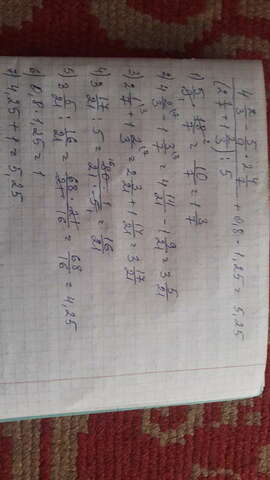 (4 2/3 - 5/9 · 2 4/7) / ((2 1/7 + 1 2/3) : 5) + 0,8 · 1,25 = 5,25
1) 5/9 · 18/7 = 10/7 = 1 3/7
2) 4 2/3 - 1 3/7 = 4 14/21 - 1 9/21 = 3 5/21
3) 2 1/7 + 1 2/3 = 2 3/21 + 1 14/21 = 3 17/21
4) 3 17/21 : 5 = 80 · 1 / 21 · 5 = 16/21
5) 3 5/21 : 16/21 = 68 · 21 / 21 · 16 = 68/16 = 4,25
6) 0,8 · 1,25 = 1
7) 4,25 + 1 = 5,25